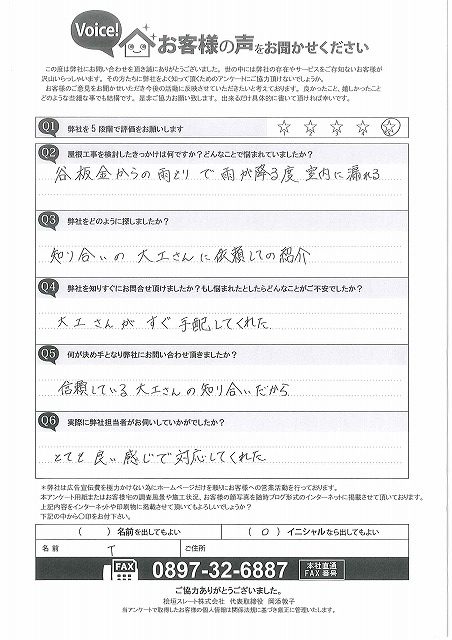 Voice!
お客様の声をお聞かせください
この度は弊社にお問い合わせを頂き誠にありがとうございました。世の中には弊社の存在やサービスをご存知ないお客様が
沢山いらっしゃいます。その方たちに弊社をよく知って頂くためのアンケートにご協力頂けないでしょうか。
お客様のご意見をお聞かせいただき今後の活動に反映させていただきたいと考えております。良かったこと、嬉しかったこと
どのような些細な事でも結構です。是非ご協力お願い致します。出来るだけ具体的に書いて頂ければ幸いです。
Q1 弊社を5段階で評価をお願いします ☆ ☆ ☆ ☆ ☆
Q2 屋根工事を検討したきっかけは何ですか?どんなことで悩まれていましたか?
谷板金からの雨とりで雨が降る度室内に漏れる
Q3 弊社をどのように探しましたか?
知り合いの大工さんに依頼しての紹介
Q4 弊社を知りすぐにお問合せ頂けましたか?もし悩まれたとしたらどんなことがご不安でしたか?
大工さんがすぐ手配してくれた
Q5 何が決め手となり弊社にお問い合わせ頂きましたか?
信頼している大工さんの知り合いだから
Q6 実際に弊社担当者がお伺いしていかがでしたか?
とても良い感じで対応してくれた
*弊社は広告宣伝費を極力かけない為にホームページだけを頼りにお客様への営業活動を行っております。
本アンケート用紙またはお客様宅の調査風景や施工状況、お客様の顔写真を随時ブログ形式のインターネットに掲載させて頂いております。
上記内容をインターネットや印刷物に掲載させて頂いてもよろしいでしょうか?
下記の中から〇印をお付下さい。
( )名前を出してもよい (○)イニシャルなら出してもよい
名前 T ご住所
FAX 0897-32-6887 本社直通
FAX番号
ご協力ありがとうございました。
桧垣スレート株式会社 代表取締役 岡添敦子
当アンケートで取得したお客様の個人情報は関係法規に基づき厳正に管理いたします。